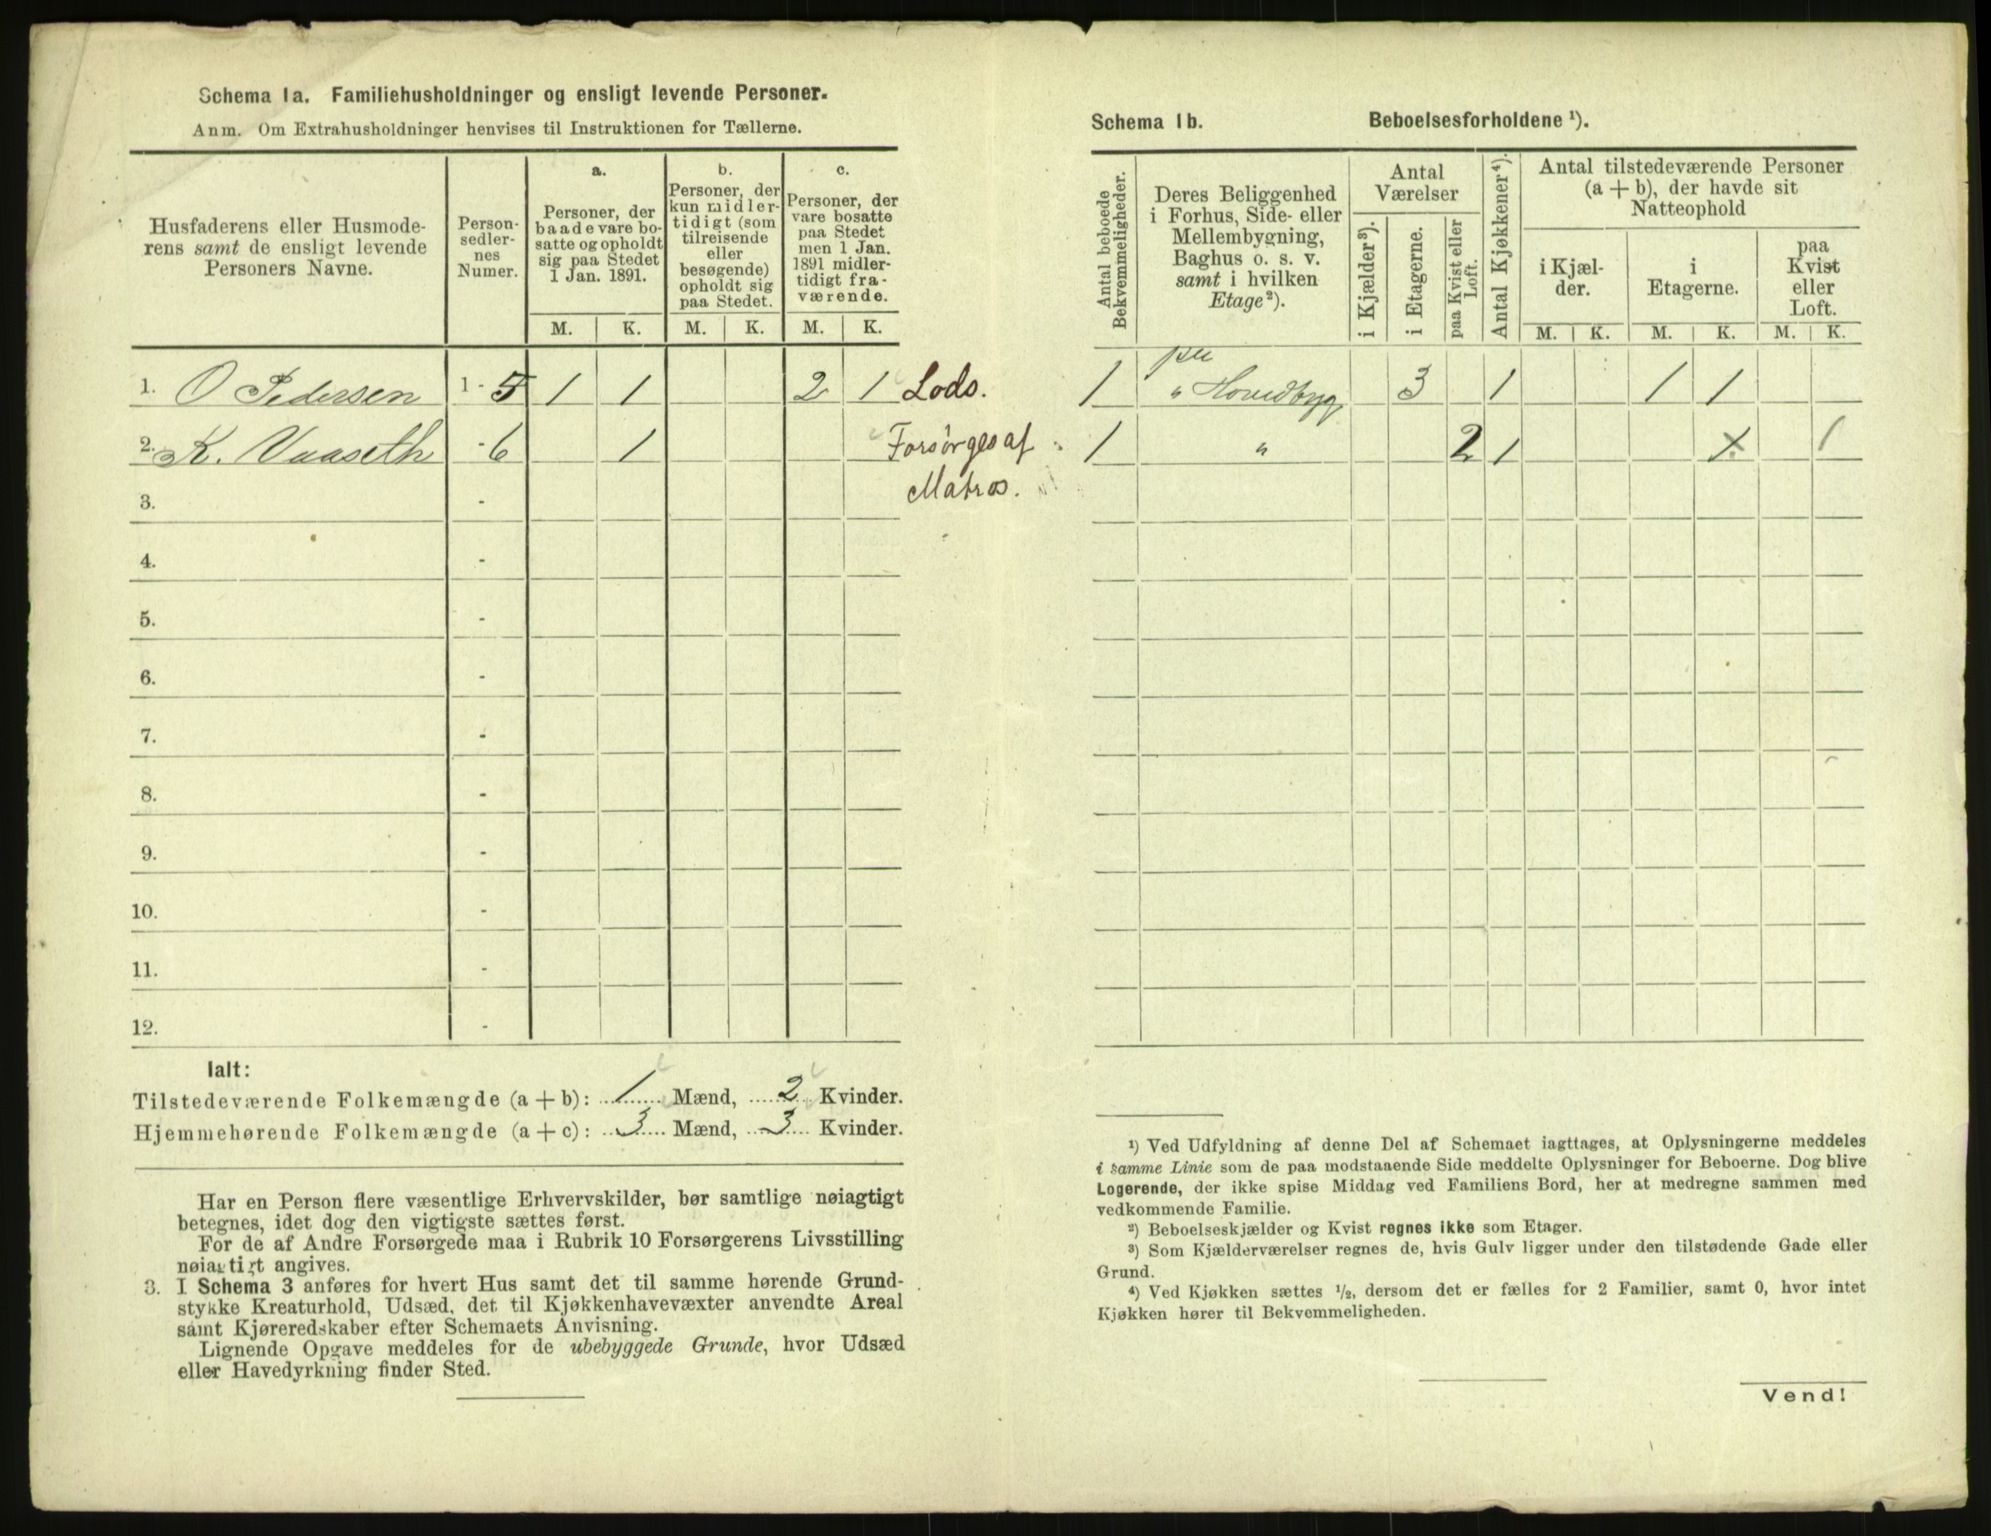 Schema 1a. Familiehusholdninger og ensligt levende Personer.
Anm. Om Extrahusholdninger henvises til Instruktionen for Tællerne.
Husfaderens eller Husmoderens samt de ensligt levende Personers Navne.
Personsedlernes Numer.
a. Personer, der baade vare bosatte og opholdt sig paa Stedet 1 Jan. 1891.
b. Personer, der kun midlertidigt (som tilreisende eller besøgende) opholdt sig paa Stedet.
c. Personer, der vare bosatte paa Stedet men 1 Jan. 1891 midlertidigt fraværende.
M. K. M. K. M. K.
1. O Pedersen 1 - 5 1 1 2 1 Lods.
2. K. Vaaseth - 6 1 Forsørges af
Matros.
3. -
4. -
5. -
6. -
7. -
8. -
9. -
10. -
11. -
12. -
Ialt:
Tilstedeværende Folkemængde (a + b): 1 Mænd, 2 Kvinder.
Hjemmehørende Folkemængde (a + c): 3 Mænd, 3 Kvinder.
Har en Person flere væsentlige Erhvervskilder, bør samtlige nøiagtigt
betegnes, idet dog den vigtigste sættes først.
For de af Andre Forsørgede maa i Rubrik 10 Forsørgerens Livsstilling
nøiagtigt angives.
3. I Schema 3 anføres for hvert Hus samt det til samme hørende Grund-
stykke Kreaturhold, Udsæd, det til Kjøkkenhavevæxter anvendte Areal
samt Kjøreredskaber efter Schemaets Anvisning.
Lignende Opgave meddeles for de ubebyggede Grunde, hvor Udsæd
eller Havedyrkning finder Sted.
Schema 1b. Beboelsesforholdene ¹).
Antal beboede Bekvemmeligheder.
Deres Beliggenhed i Forhus, Side- eller Mellembygning, Baghus o. s. v. samt i hvilken Etage²).
Antal Værelser
i Kjælder³).
i Etagerne.
paa Kvist eller Loft.
Antal Kjøkkener⁴).
Antal tilstedeværende Personer (a + b), der havde sit Natteophold
i Kjælder.
i Etagerne.
paa Kvist eller Loft.
M. K. M. K. M. K.
1 " Hovedbyg 3 1 1 1
1 " 2 1 1
¹) Ved Udfyldning af denne Del af Schemaet iagttages, at Oplysningerne meddeles
i samme Linie som de paa modstaaende Side meddelte Oplysninger for Beboerne. Dog blive
Logerende, der ikke spise Middag ved Familiens Bord, her at medregne sammen med
vedkommende Familie.
²) Beboelseskjælder og Kvist regnes ikke som Etager.
³) Som Kjælderværelser regnes de, hvis Gulv ligger under den tilstødende Gade eller
Grund.
⁴) Ved Kjøkken sættes ½, dersom det er fælles for 2 Familier, samt 0, hvor intet
Kjøkken hører til Bekvemmeligheden.
Vend!